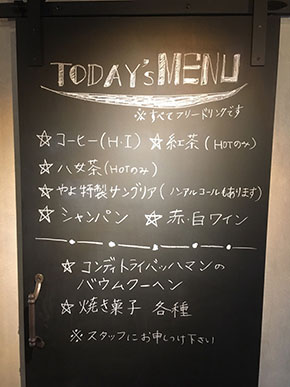 TODAY's MENU
※すべてフリードリンクです
☆コーヒー(H・I) ☆紅茶(HOTのみ)
☆八女茶(HOTのみ)
☆やよ特製サングリア(ノンアルコールもあります)
☆シャンパン ☆赤・白ワイン
☆コンディトライバッハマンの
バウムクーヘン
☆焼き菓子 各種
※スタッフにお申しつけ下さい